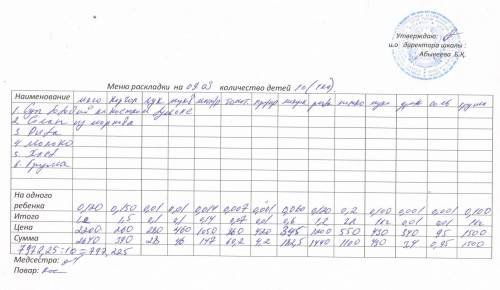 Утверждаю:
и.о директора школы :
Абыкеева Б.Қ.
Меню раскладки на 09.03 количество детей 10 (
Наименование мясо картоп лук
1. Суп
2. Салат из моркови
3 Рыба
4 Молоко
5. Хлеб
6. Груша
На одного
ребенка 0,120 0,150 0,01 0,01 0,014 0,007 0,001 0,060 0,120 0,2 0,100 0,001 0,001 0,100
Итого 1,2 1,5 0,1 0,1 0,14 0,07 0,01 0,6 1,2 2л 1кг 0,01 0,01 1кг
Цена 2200 260 280 460 1050 860 420 345 1200 550 430 340 95 1500
Сумма 2640 390 28 46 147 60,2 4,2 1440 1100 430 3,4 0,95 1500
7972,25:10=797,225
Медсестра:
Повар: